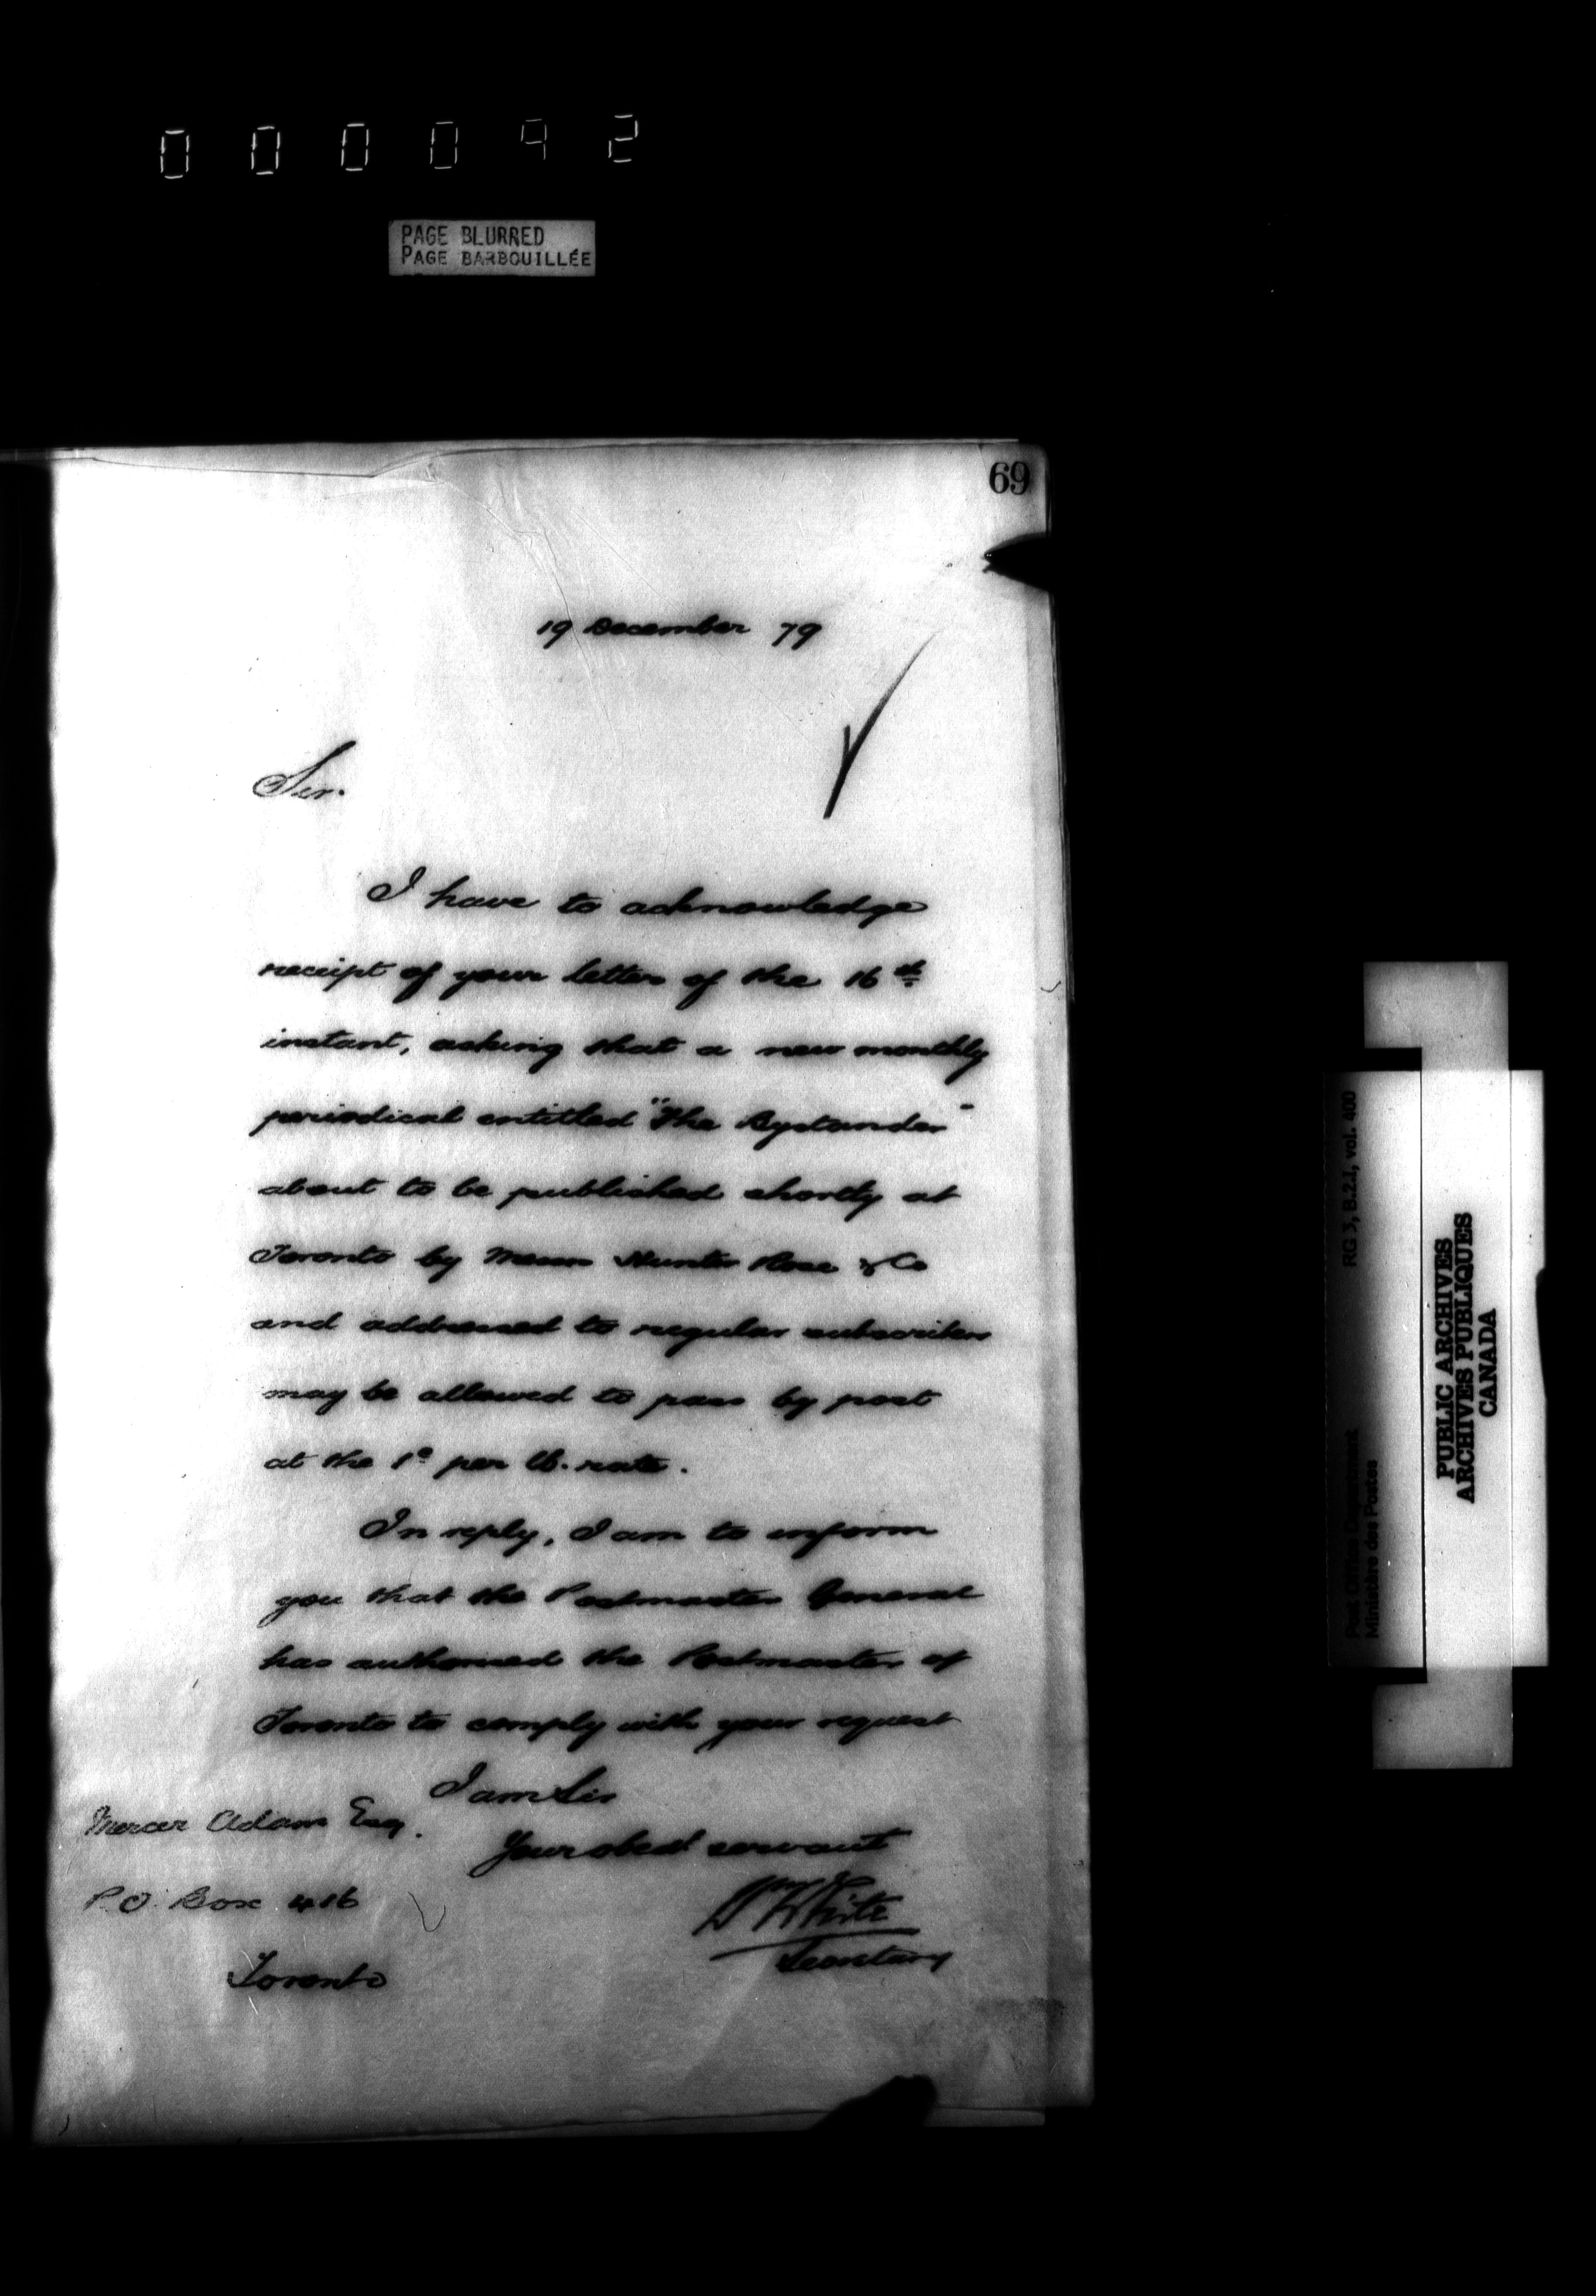 000092
PAGE BLURRED
PAGE BARBOUILLÉE
69
19 December 79
Sir.
I have to acknowledge
receipt of your letter of the 16th
instant, asking that a new monthly
periodical entitled "The Bystander"
about to be published shortly at
Toronto by Messrs Hunter Rose & Co
and addressed to regular subscribers
may be allowed to pass by post
at the 1c per lb. rate.
In reply, I am to inform
you that the Postmaster General
has authorised the Postmaster of
Toronto to comply with your request
I am Sir
Your obedt servant
Wm White
Secretary
Mercer Adam Esq.
P.O. Box 416
Toronto
RG 3, B.2.I, vol. 400
Post Office Department
Ministère des Postes
PUBLIC ARCHIVES
ARCHIVES PUBLIQUES
CANADA